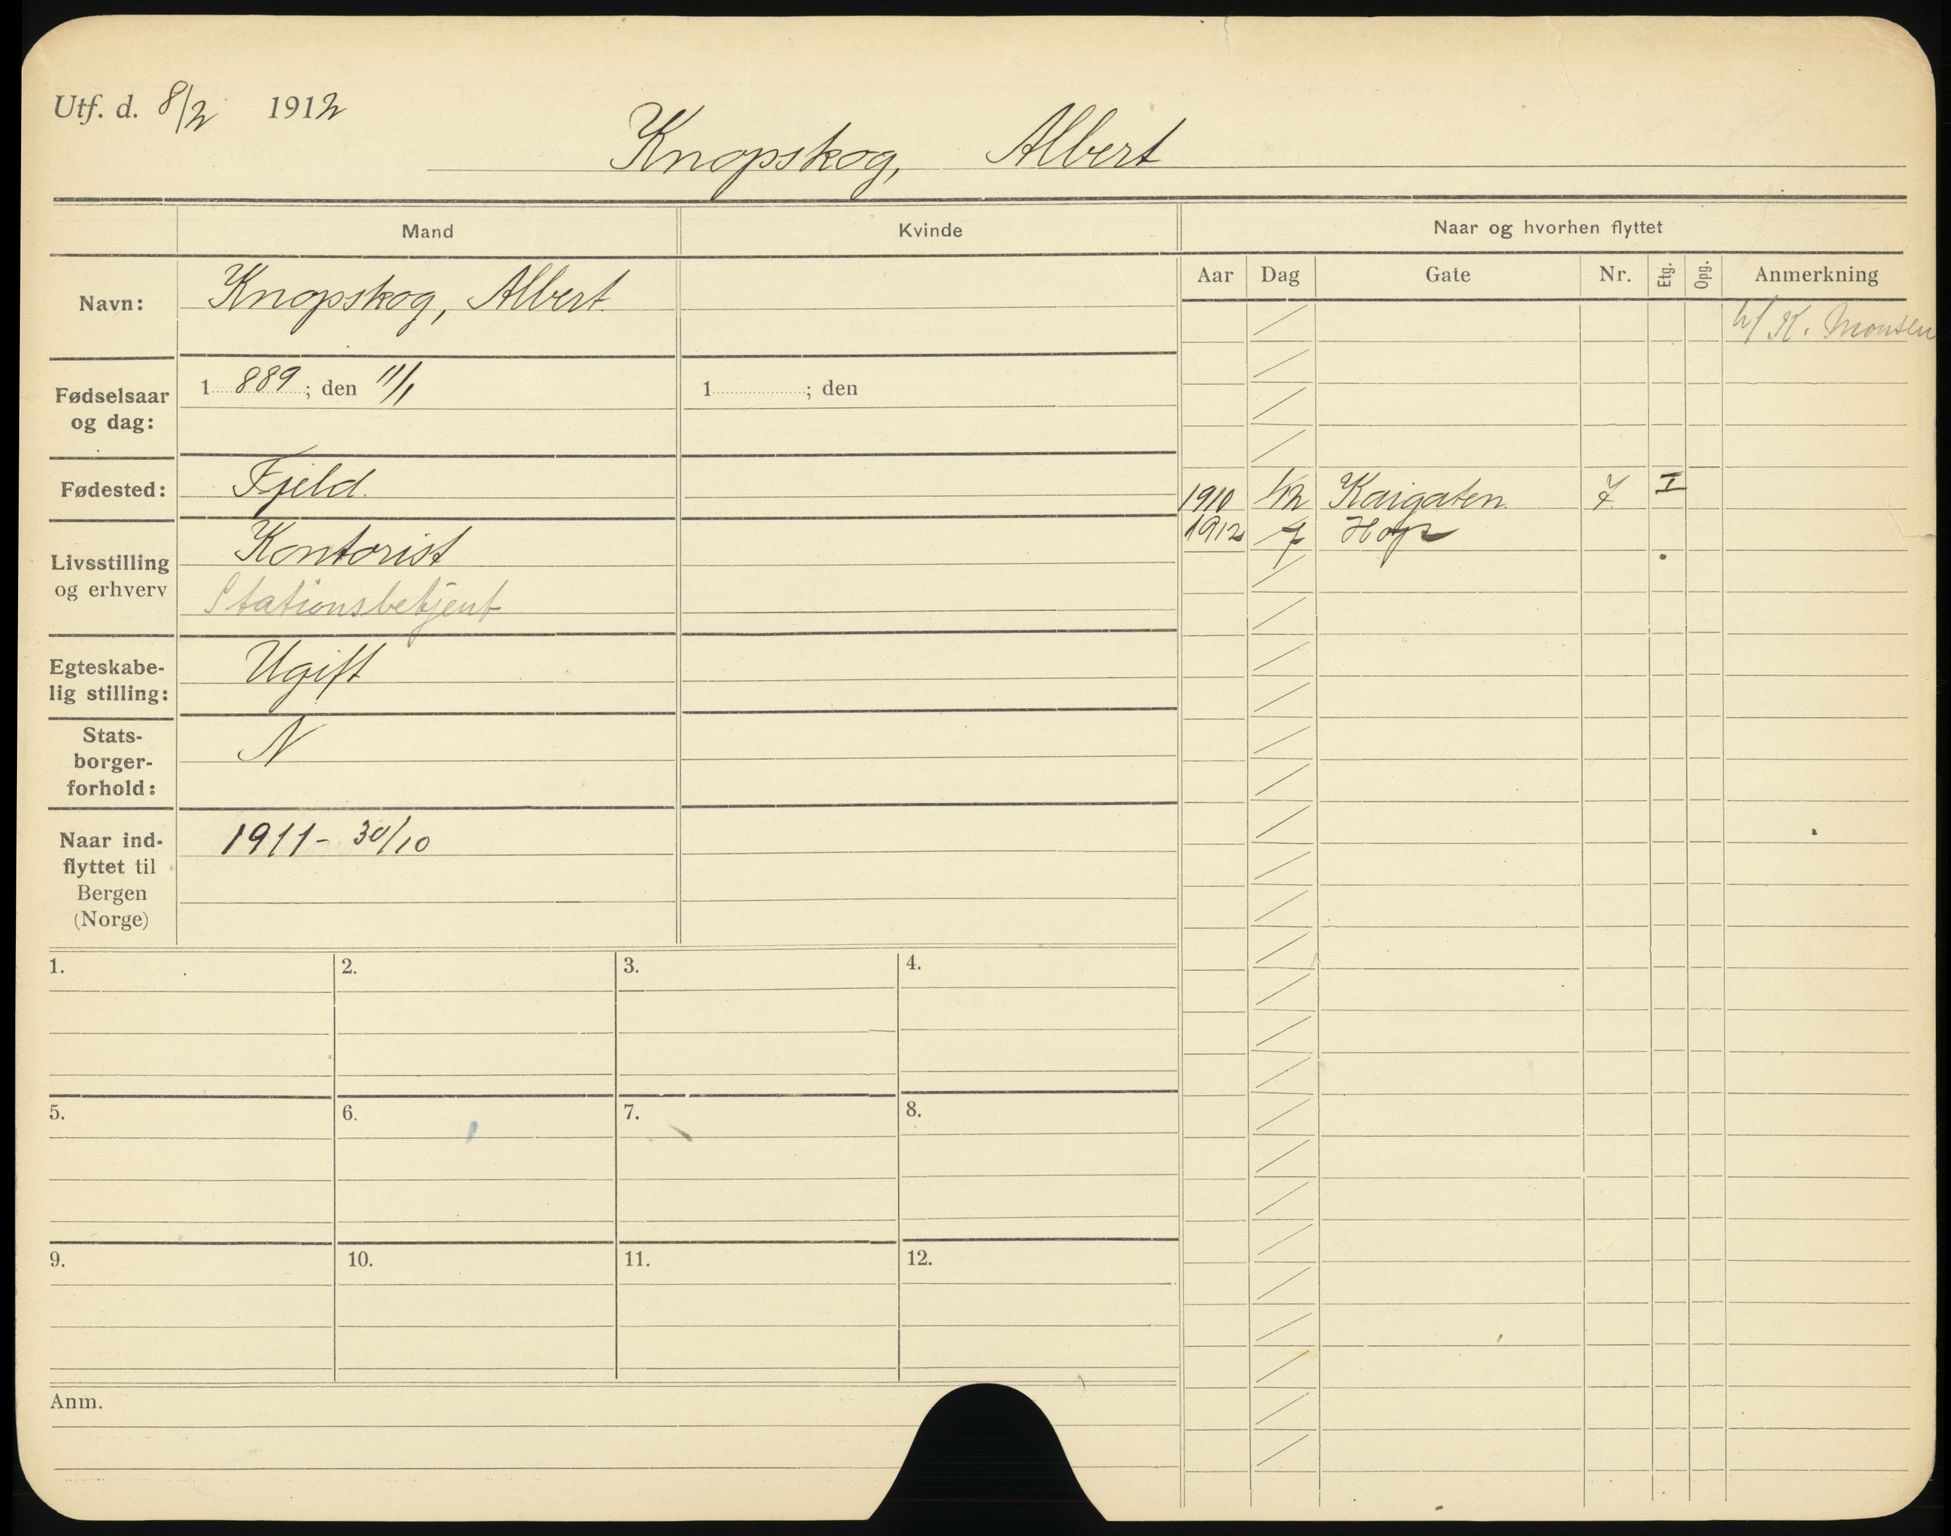 Utf. d. 8/2 1912
Knopskog, Albert
Mand
Kvinde
Naar og hvorhen flyttet
Navn:
Knopskog, Albert.
Aar Dag Gate Nr. Etg. Opg. Anmerkning
h/ K. Monsen
Fødselsaar
og dag:
1 889 ; den 11/1
1 ; den
Fødested:
Fjeld.
1910 1/12 Kaigaten 7 I
1912 Hop
Livsstilling
og erhverv
Kontorist
Stationsbetjent
Egteskabe-
lig stilling:
Ugift
Stats-
borger-
forhold:
N
Naar ind-
flyttet til
Bergen
(Norge)
1911 - 30/10
1. 2. 3. 4.
5. 6. 7. 8.
9. 10. 11. 12.
Anm.